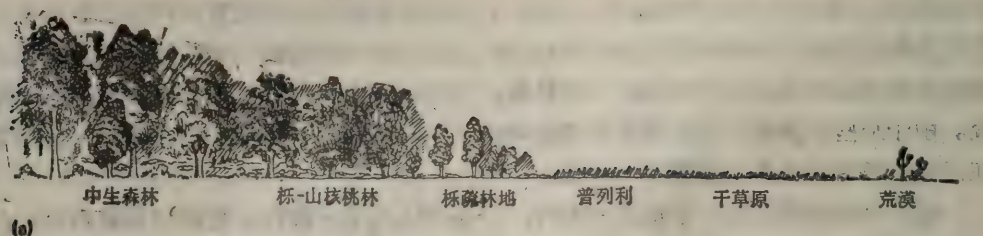 中生森林 栎-山核桃林 栎疏林地 普列利 干草原 荒漠
(a)